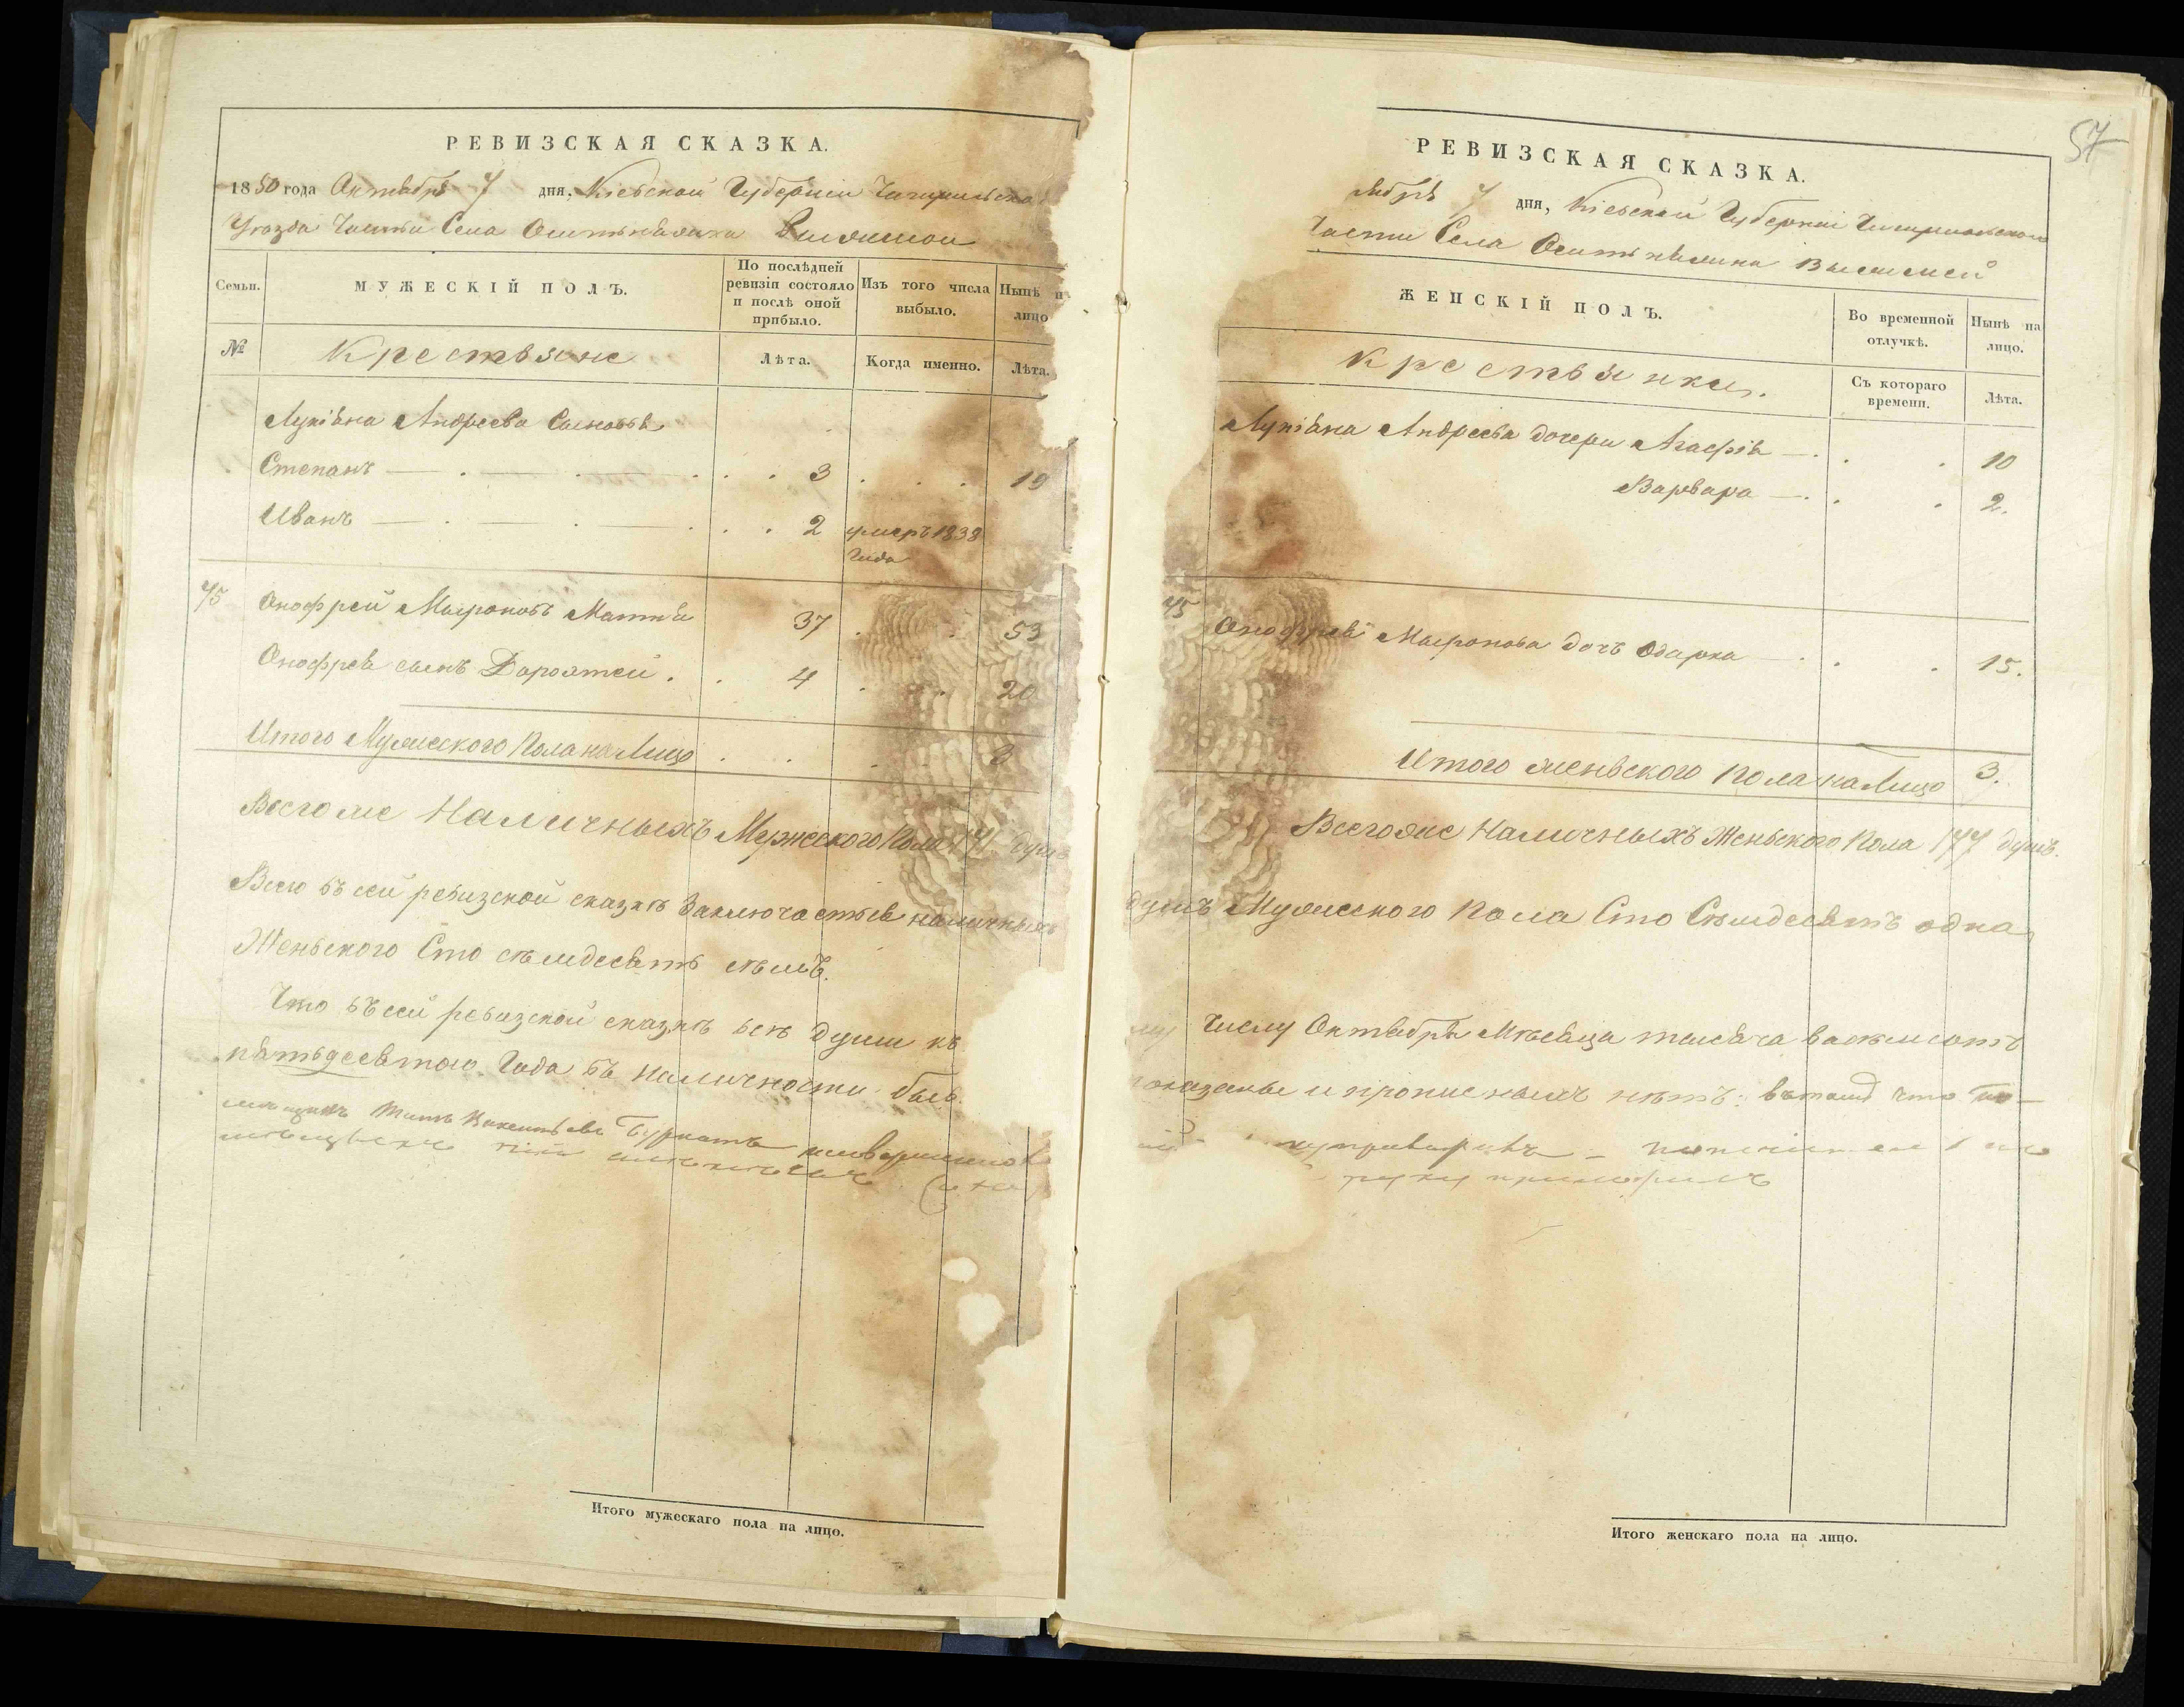 РЕВИЗСКАЯ СКАЗКА.
1850 года Октября 7 дня, Кіевской Губерніи Чигиринско
Уѣзда Части Села
Семьи.
МУЖЕСКІЙ ПОЛЪ.
По послѣдней ревизіи состояло и послѣ оной прибыло.
Изъ того числа выбыло.
Нынѣ н лицо
№
Крестьяне
Лѣта.
Когда именно.
Лѣта.
Лукіана Андреева Сыновья
Степанъ 3 19
Иванъ 2 умеръ 1838
Года
45 Онофрей Мыроновъ 37 53
Онофрея сынъ Дороятей 4 20
Итого Мужеского Пола на Лицо 3
Всего же Наличныхъ Мужеского Пола 171 душ
Всего въ сей ревизской сказкѣ Заключается наличныхъ
Женьского Сто семдесятъ семъ.
Что въ сей ревизской сказкѣ всѣ души къ
пятьдесятого Года въ наличности
Итого мужескаго пола на лицо.
57
РЕВИЗСКАЯ СКАЗКА.
ября 7 дня, Кіевской Губерніи Чигиринского
Части Села
ЖЕНСКІЙ ПОЛЪ.
Во временной отлучкѣ.
Нынѣ на лицо.
Крестьянки.
Съ котораго времени.
Лѣта.
Лукіана Андреева дочери Агафія 10
Варвара 2.
45 Онофрея Мыронова дочъ Одарка 15.
Итого женьского пола на Лицо 3.
Всего же Наличныхъ Женьского Пола 177 душъ.
душъ Мужеского пола Сто Семдесятъ одна
Числу Октября Мѣсяца тысяча восемсотъ
и прописныхъ нѣтъ: что
руку приложилъ
Итого женскаго пола на лицо.